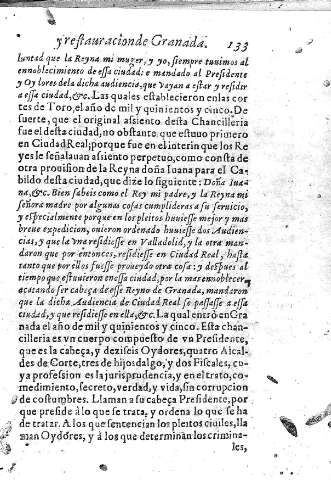 y restauracion de Granada. 133
luntad que la Reyna mi muger, y yo, siempre tuuimos al
ennoblecimiento de essa ciudad: e mandado al Presidente
y Oydores de la dicha audiencia, que vayan a estar y residir
a essa ciudad, &c. Las quales establecieron en las cor
tes de Toro, el año de mil y quinientos y cinco. De
suerte, que el original assiento desta Chancilleria
fue el desta ciudad, no obstante que estuuo primero
en Ciudad Real; porque fue en el interin que los Re
yes le señalauan assiento perpetuo, como consta de
otra prouision de la Reyna doña Iuana para el Ca
bildo desta ciudad, que dize lo siguiente: Doña Iua
na, &c. Bien sabeis como el Rey mi padre, y la Reyna mi
señora madre por algunas cosas cumplideras a su seruicio,
y especialmente porque en los pleitos huuiesse mejor y mas
breue expedicion, ouieron ordenado huuiesse dos Audien-
cias, y que la vna residiesse en Valladolid, y la otra man-
daron que por entonces, residiesse en Ciudad Real, hasta
tanto que por ellos fuesse proueydo otra cosa: y despues al
tiempo que estuuieron en essa ciudad, por la mas ennoblecer,
acatando ser cabeça de esse Reyno de Granada, mandaron
que la dicha Audiencia de Ciudad Real se passasse a essa
ciudad, y que residiesse en ella, &c. La qual entrò en Gra
nada el año de mil y quinientos y cinco. Esta chan-
cilleria es vn cuerpo compuesto de vn Presidente,
que es la cabeça, y deziseis Oydores, quatro Alcal-
des de Corte, tres de hijosdalgo, y dos Fiscales, cu
ya profession es la jurisprudencia, y en el trato, co-
medimiento, secreto, verdad, y vida, sin corrupcion
de costumbres. Llaman a su cabeça Presidente, por
que preside à lo que se trata, y ordena lo que se ha
de tratar. A los que sentencian los pleitos ciuiles, lla
man Oydores, y à los que determinan los crimina-
les,